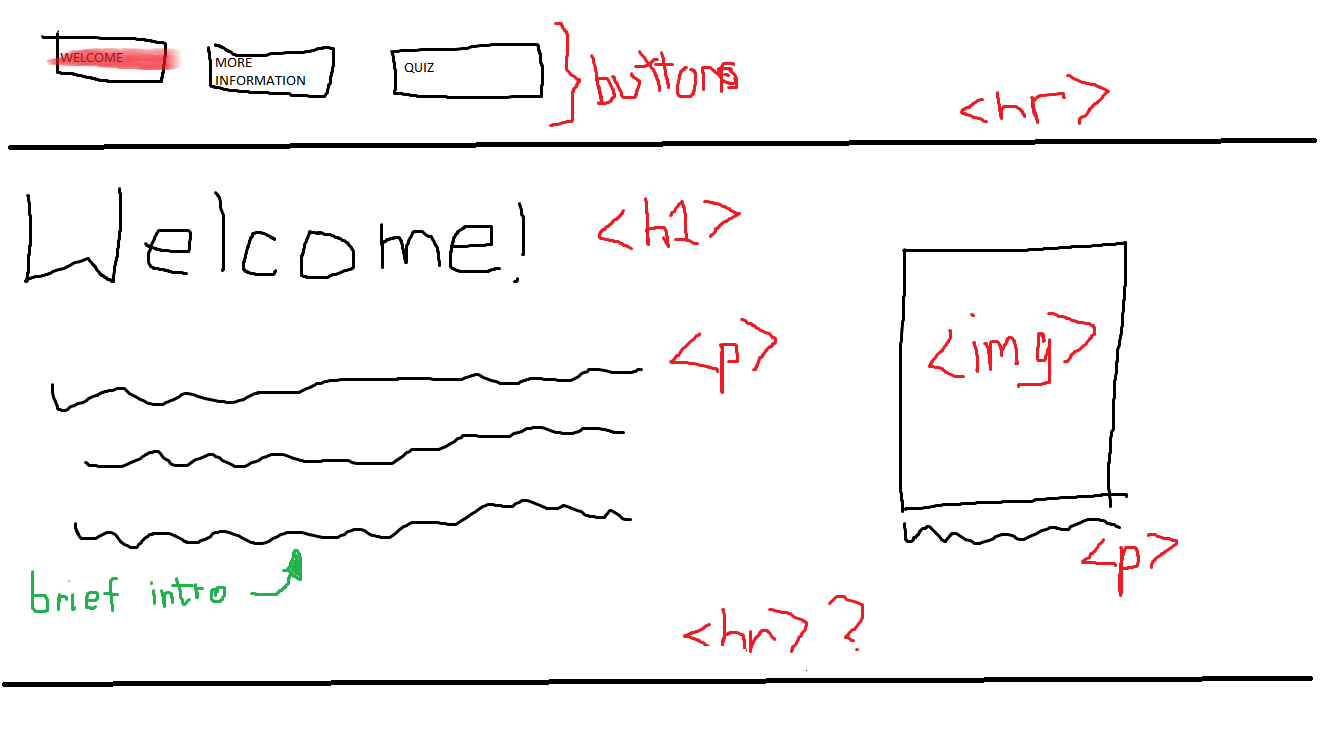 WELCOME
MORE
INFORMATION
QUIZ
buttons
<hr>
Welcome!
<h1>
<p>
<img>
<p>
brief intro
<hr>?